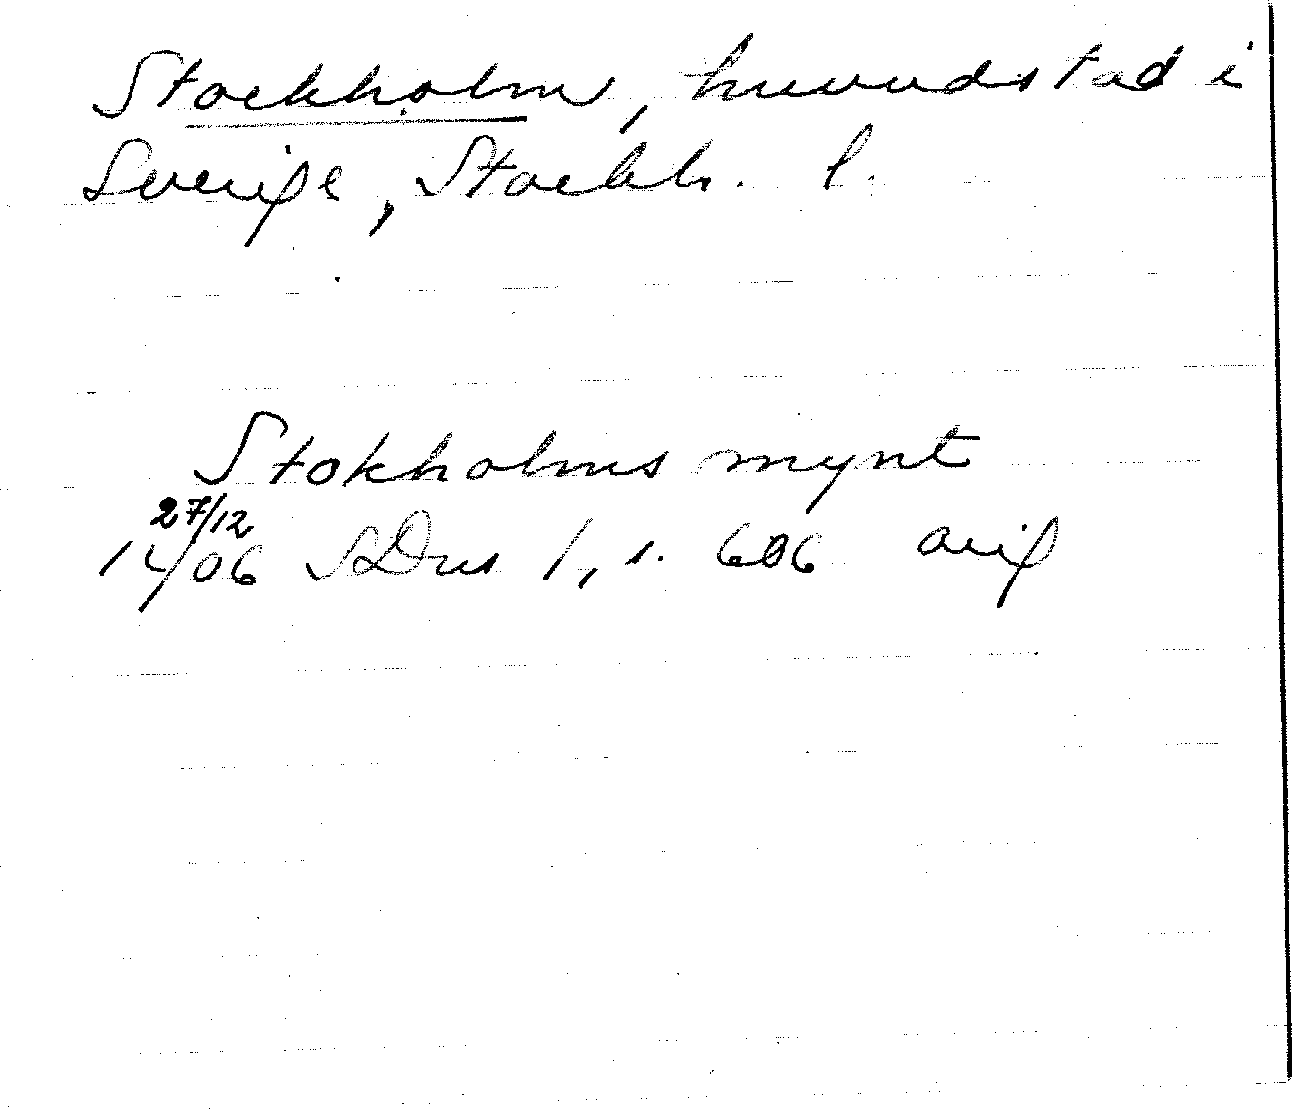 Stockholm, huvudstad i
Sverige, Stockh. l.
Stokholms mynt
27/12
14/06 SDns 1, s. 606 orig